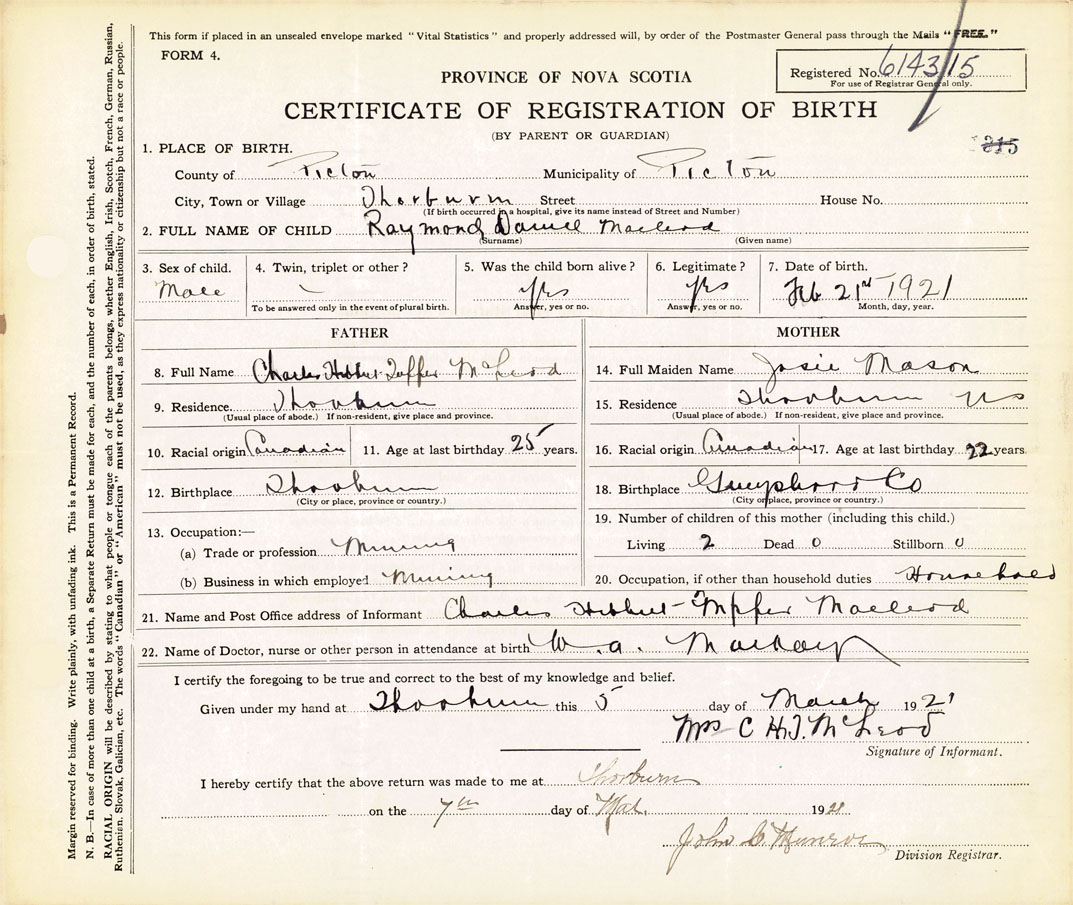 This form if placed in an unsealed envelope marked "Vital Statistics" and properly addressed will, by order of the Postmaster General pass through the Mails "FREE."
FORM 4.
PROVINCE OF NOVA SCOTIA
Registered No. 6143/15
For use of Registrar General only.
CERTIFICATE OF REGISTRATION OF BIRTH
(BY PARENT OR GUARDIAN)
315
1. PLACE OF BIRTH.
County of Picton Municipality of Picton
City, Town or Village Thorburn Street House No.
(If birth occurred in a hospital, give its name instead of Street and Number)
2. FULL NAME OF CHILD Raymond Daniel Macleod
(Surname) (Given name)
3. Sex of child. 4. Twin, triplet or other? 5. Was the child born alive? 6. Legitimate? 7. Date of birth.
Male yes yes Feb 21st 1921
To be answered only in the event of plural birth. Answer, yes or no. Answer, yes or no. Month, day, year.
FATHER MOTHER
8. Full Name Charles Hibbert McLeod
14. Full Maiden Name Josie Mason
9. Residence Thorburn
(Usual place of abode.) If non-resident, give place and province.
15. Residence Thorburn NS
(Usual place of abode.) If non-resident, give place and province.
10. Racial origin Canadian 11. Age at last birthday 25 years.
16. Racial origin Canadian 17. Age at last birthday 22 years.
12. Birthplace Thorburn
(City or place, province or country.)
18. Birthplace Co
(City or place, province or country.)
13. Occupation:—
(a) Trade or profession Mining
(b) Business in which employed Mining
19. Number of children of this mother (including this child.)
Living 2 Dead 0 Stillborn 0
20. Occupation, if other than household duties Household
21. Name and Post Office address of Informant Charles Hibbert Macleod
22. Name of Doctor, nurse or other person in attendance at birth W. a. Mackay
I certify the foregoing to be true and correct to the best of my knowledge and belief.
Given under my hand at Thorburn this 5 day of March 1921
Mrs C H.T. McLeod
Signature of Informant.
I hereby certify that the above return was made to me at Thorburn
on the 7th day of Mar. 1921
John C. Munroe
Division Registrar.
Margin reserved for binding. Write plainly, with unfading ink. This is a Permanent Record.
N. B.—In case of more than one child at a birth, a Separate Return must be made for each, and the number of each, in order of birth, stated.
RACIAL ORIGIN will be described by stating to what people or tongue each of the parents belongs, whether English, Irish, Scotch, French, German, Russian,
Ruthenian, Slovak, Galician, etc. The words "Canadian" or "American" must not be used, as they express nationality or citizenship but not a race or people.